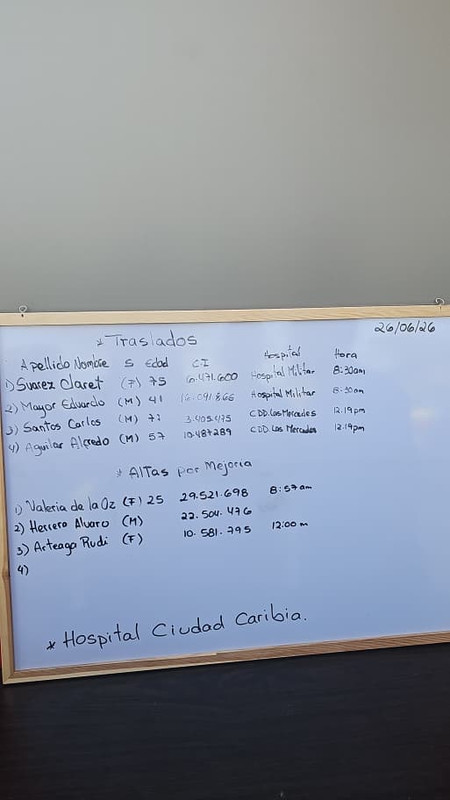 26/06/26
* Traslados
Apellido Nombre S Edad CI Hospital Hora
1) Suarez Claret (F) 75 6.471.600 Hospital Militar 8:30am
2) Mayor Eduardo (M) 41 16.091.866 Hospital Militar 8:30am
3) Santos Carlos (M) 72 3.405.475 CDD.Las Mercedes 12:19pm
4) Aguilar Alfredo (M) 57 10.487289 CDD.Las Mercedes 12:19pm
* Altas por Mejoria
1) Valeria de la Oz (F) 25 29.521.698 8:57am
2) Herrera Alvaro (M) 22.504.476
3) Arteaga Rudi (F) 10.581.795 12:00m
4)
* Hospital Ciudad Caribia.